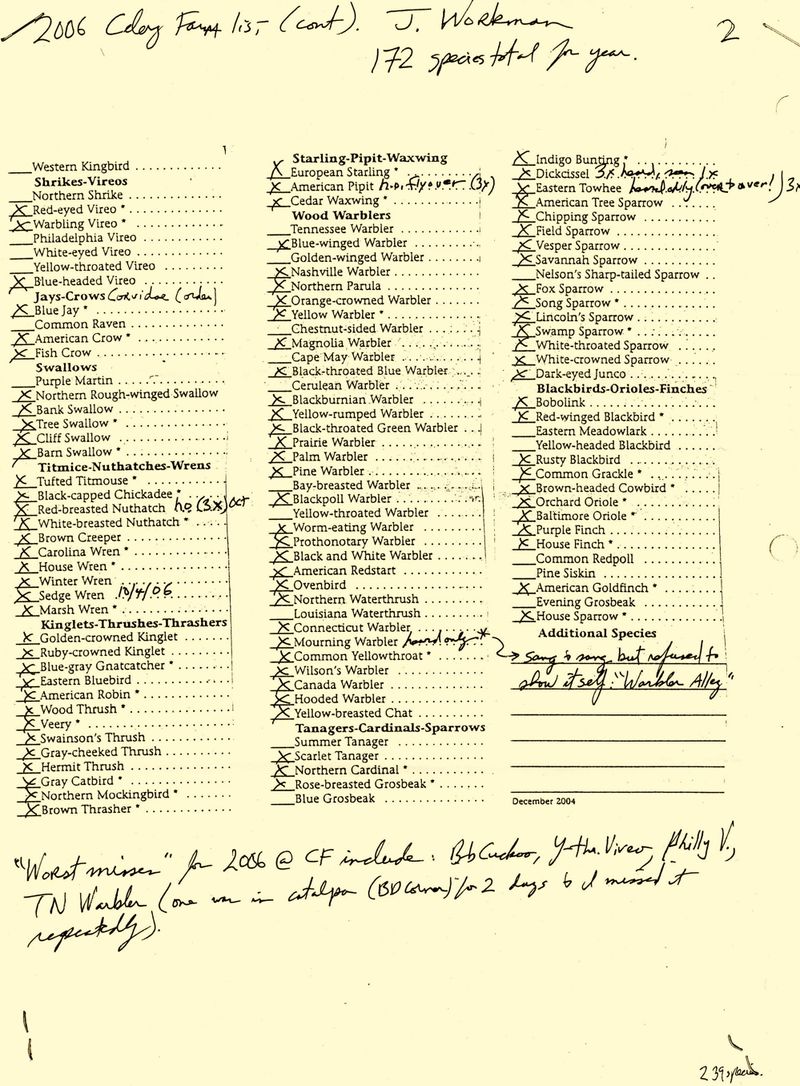 2006 Coley Farm list (cont). J. Workman 2
172 species total for year.
___Western Kingbird
Shrikes-Vireos
___Northern Shrike
X Red-eyed Vireo *
X Warbling Vireo *
___Philadelphia Vireo
___White-eyed Vireo
___Yellow-throated Vireo
X Blue-headed Vireo
Jays-Crows Corvidae (order)
X Blue Jay *
___Common Raven
X American Crow *
X Fish Crow
Swallows
___Purple Martin
X Northern Rough-winged Swallow
X Bank Swallow
X Tree Swallow *
X Cliff Swallow
X Barn Swallow *
Titmice-Nuthatches-Wrens
X Tufted Titmouse *
X Black-capped Chickadee *
X Red-breasted Nuthatch h.o. (3x) oct
X White-breasted Nuthatch *
X Brown Creeper
X Carolina Wren *
X House Wren *
X Winter Wren
X Sedge Wren 10/4/06
X Marsh Wren *
Kinglets-Thrushes-Thrashers
X Golden-crowned Kinglet
X Ruby-crowned Kinglet
X Blue-gray Gnatcatcher *
X Eastern Bluebird
X American Robin *
X Wood Thrush *
X Veery *
X Swainson's Thrush
X Gray-cheeked Thrush
X Hermit Thrush
X Gray Catbird *
X Northern Mockingbird *
X Brown Thrasher *
Starling-Pipit-Waxwing
X European Starling *
X American Pipit h.o. flyover (3x)
X Cedar Waxwing *
Wood Warblers
___Tennessee Warbler
X Blue-winged Warbler
___Golden-winged Warbler
X Nashville Warbler
X Northern Parula
X Orange-crowned Warbler
X Yellow Warbler *
___Chestnut-sided Warbler
X Magnolia Warbler
___Cape May Warbler
X Black-throated Blue Warbler
___Cerulean Warbler
X Blackburnian Warbler
X Yellow-rumped Warbler
X Black-throated Green Warbler
X Prairie Warbler
X Palm Warbler
X Pine Warbler
___Bay-breasted Warbler
X Blackpoll Warbler
___Yellow-throated Warbler
X Worm-eating Warbler
X Prothonotary Warbler
X Black and White Warbler
X American Redstart
X Ovenbird
X Northern Waterthrush
___Louisiana Waterthrush
X Connecticut Warbler
X Mourning Warbler heard only *
X Common Yellowthroat *
X Wilson's Warbler
X Canada Warbler
X Hooded Warbler
X Yellow-breasted Chat
Tanagers-Cardinals-Sparrows
___Summer Tanager
X Scarlet Tanager
X Northern Cardinal *
X Rose-breasted Grosbeak *
___Blue Grosbeak
X Indigo Bunting *
X Dickcissel 3x heard, seen 1x
X Eastern Towhee heard only (over & over!) 3x
X American Tree Sparrow
X Chipping Sparrow
X Field Sparrow
X Vesper Sparrow
X Savannah Sparrow
___Nelson's Sharp-tailed Sparrow
X Fox Sparrow
X Song Sparrow *
X Lincoln's Sparrow
X Swamp Sparrow *
X White-throated Sparrow
X White-crowned Sparrow
X Dark-eyed Junco
Blackbirds-Orioles-Finches
X Bobolink
X Red-winged Blackbird *
___Eastern Meadowlark
___Yellow-headed Blackbird
X Rusty Blackbird
X Common Grackle *
X Brown-headed Cowbird *
X Orchard Oriole *
X Baltimore Oriole *
X Purple Finch
X House Finch *
___Common Redpoll
___Pine Siskin
X American Goldfinch *
___Evening Grosbeak
X House Sparrow *
Additional Species
→ sang & sang but refused to
show itself. "Warbler Alley"
December 2004
"Worst misses" for 2006 @ CF include: Bb Cuckoo, Y-thr. Vireo, Philly V.,
TN Warbler (one was in catalpa (BD corner) for 2 days & I missed it
repeatedly).
239 species.